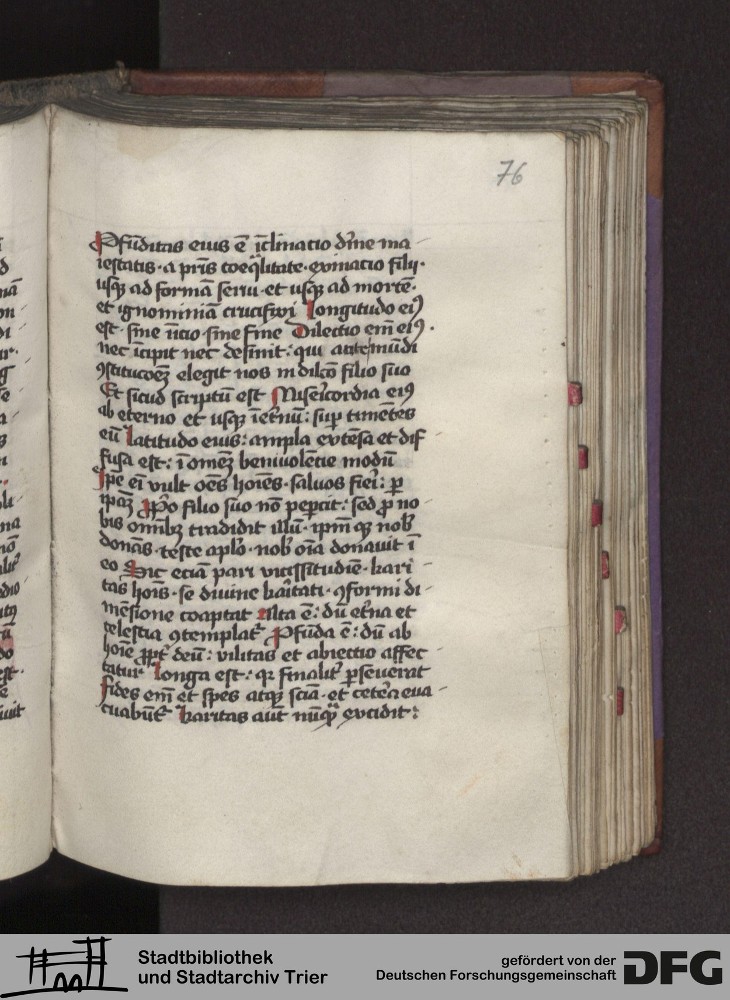 76
Pfūditas eius ē īclinatio dīne ma
iestatis · a prīs coeq̄litate · exinacio filii ·
usqꝫ ad formā serui · et usqꝫ ad mortē ·
et ignominiā crucifixi Longitudo eiꝰ
est · sine īicio · sine fine Dilectio em̄ eiꝰ ·
nec īcipit nec desinit : qui ante mūdi
ꝯstitucoēꝫ elegit nos in dilc̄o filio suo
Et sicud scriptū est Misericordia eiꝰ
ab eterno et usqꝫ ī et̄nū : sup timētes
eū Latitudo eius : ampla extēsa et dif
fusa est : ī omēꝫ beniuolētie modū
Ipe em̄ vult oēs hoīes · saluos fieri : ꝓ
Pp̄o filio suo nō peꝑcit : sed ꝓ no
bis om̄ibꝫ tradidit illū · ip̄m qꝫ nob̄
donās · teste aplo · nob̄ oīa donauit ī
eo Sic eciā pari vicissitudīe · kari
tas hoīs · se diuine karitati · ꝯformi di
mēsione coaptat Alta ē : dū et̄na et
celestia ꝯtemplat᷑ Pfūda ē : dū ab
hoīe ꝓpt̄ deū : vilitas et abiectio affec
tatur Longa est : qꝛ finalit᷑ ꝑseuerat
Fides em̄ et spes atqꝫ sciā · et cetera eua
cuabūt᷑ Karitas aut̄ nūq̄ excidit :
Stadtbibliothek
und Stadtarchiv Trier
gefördert von der
Deutschen Forschungsgemeinschaft
DFG